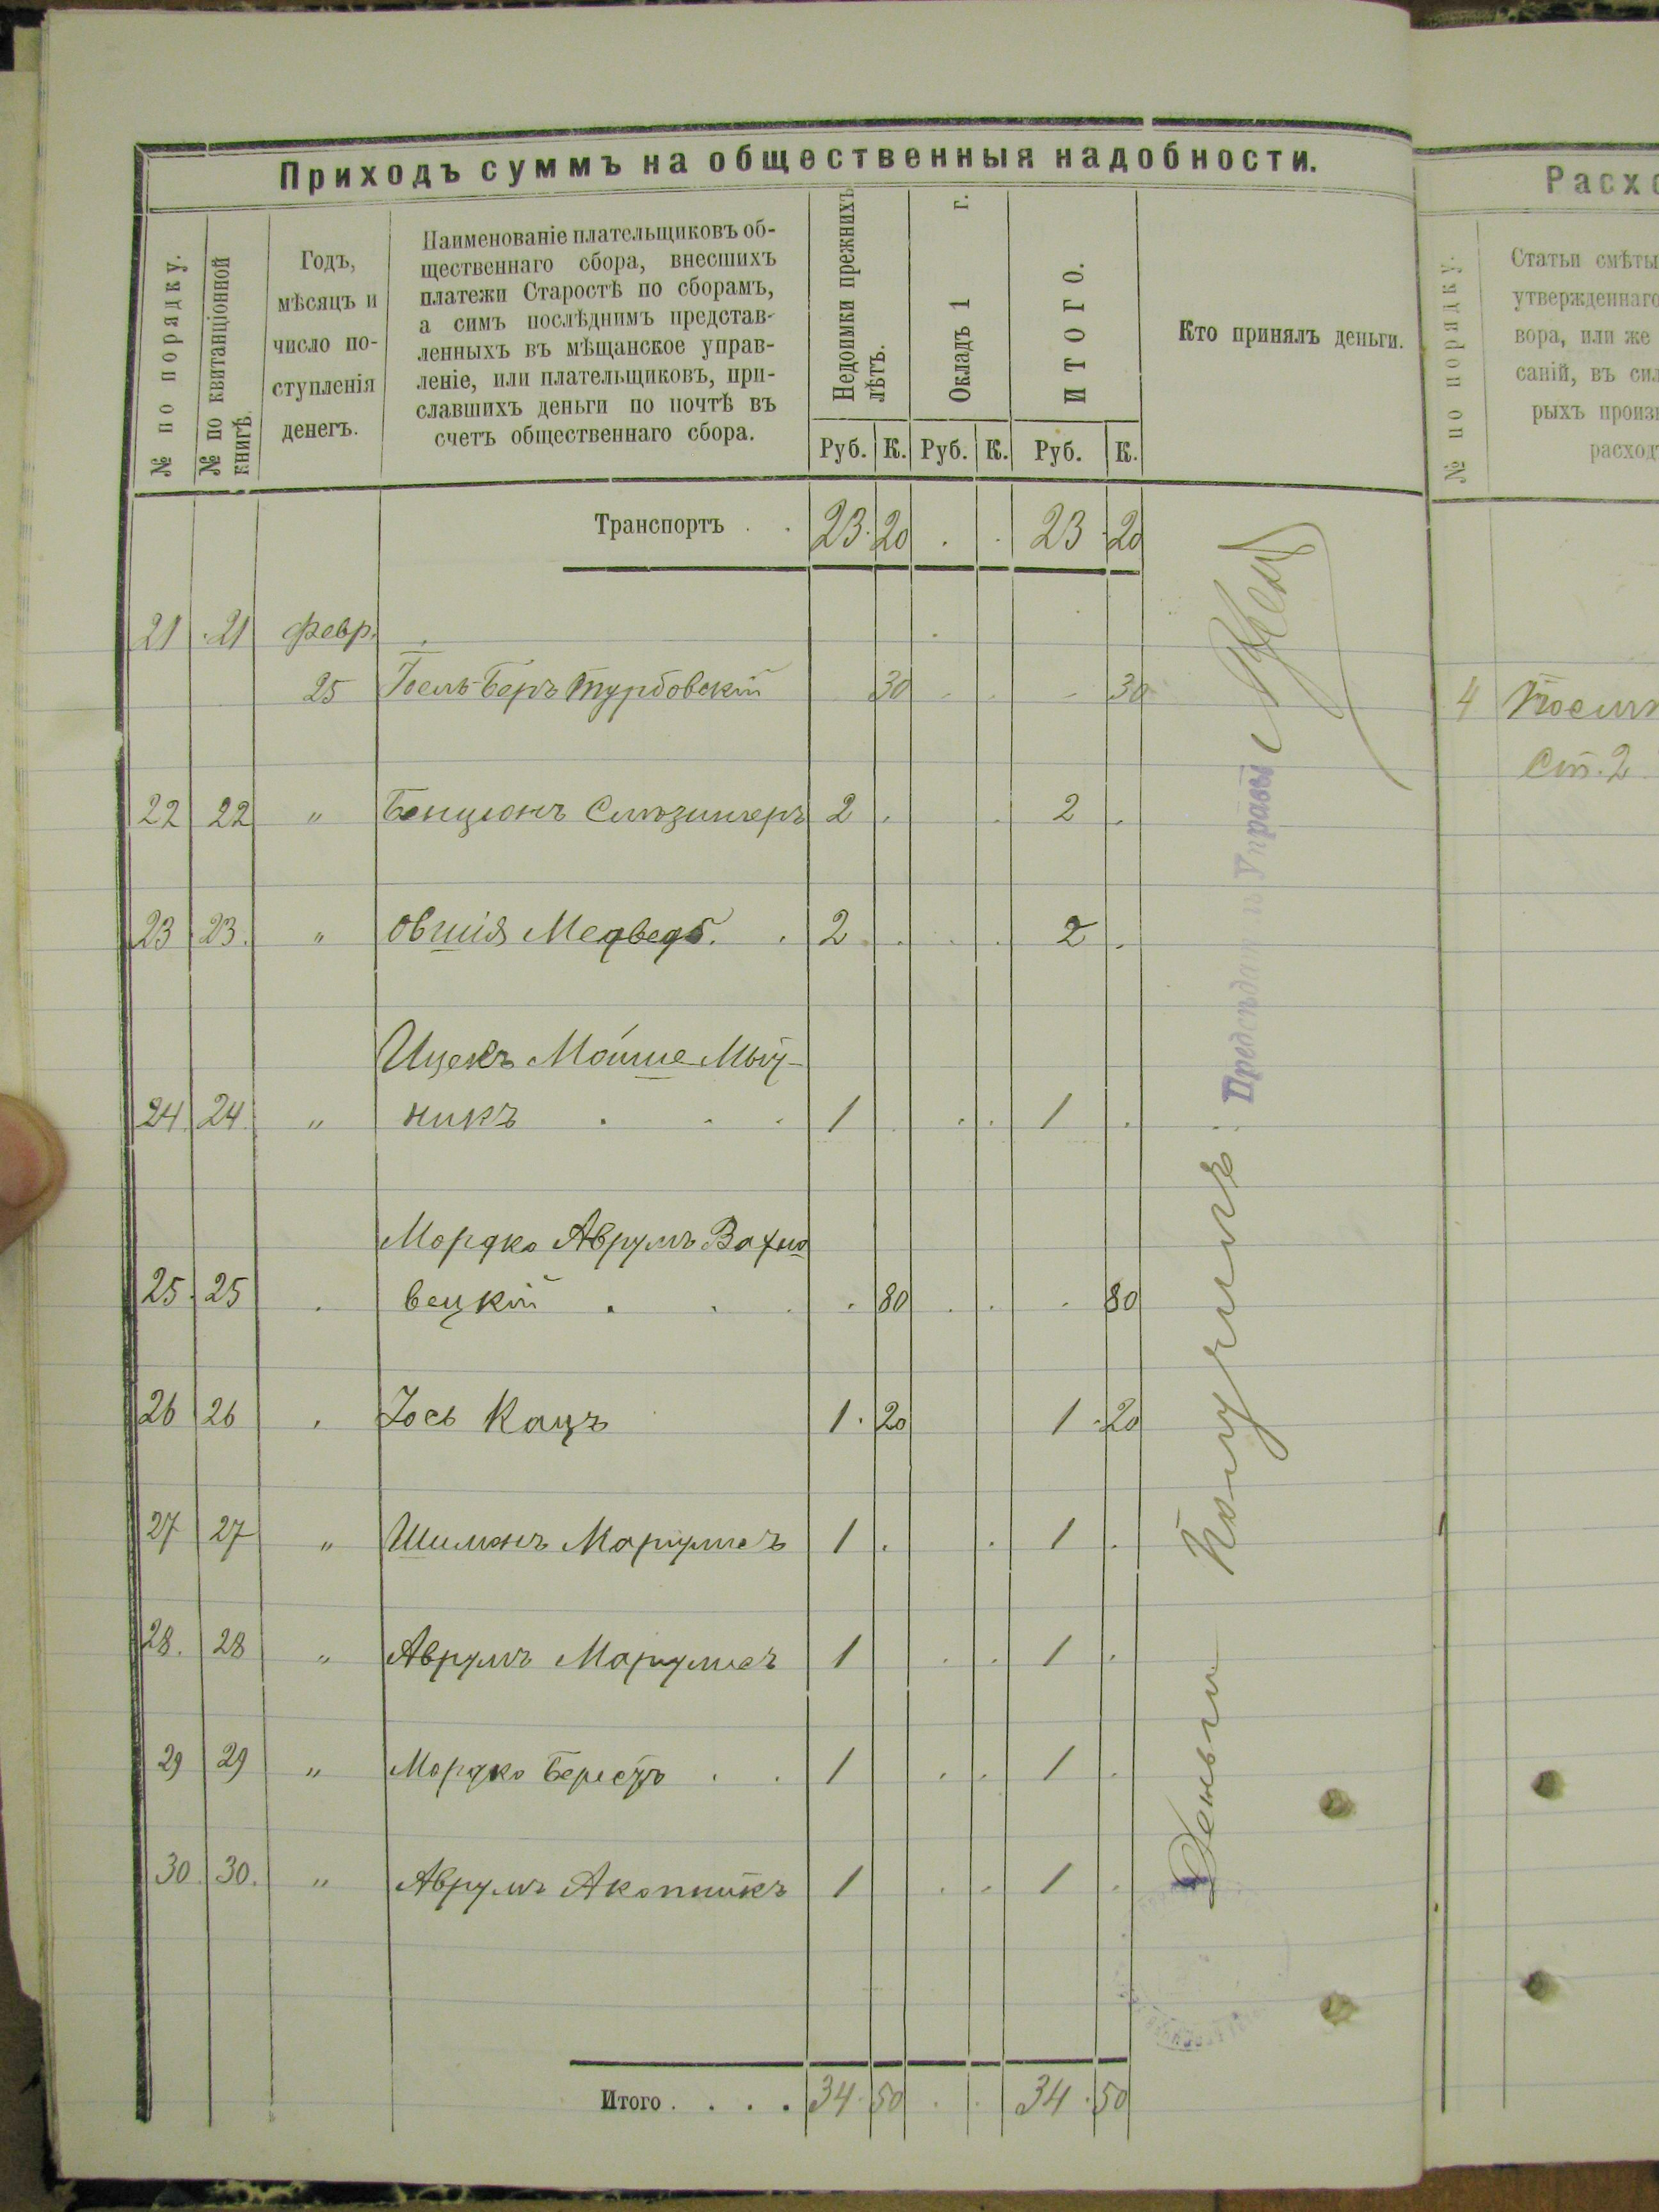 Приходъ суммъ на общественныя надобности.
№ по порядку.
№ по квитанціонной
книгѣ.
Годъ,
мѣсяцъ и
число по-
ступленія
денегъ.
Наименованіе плательщиковъ об-
щественнаго сбора, внесшихъ
платежи Старостѣ по сборамъ,
а симъ послѣднимъ представ-
ленныхъ въ мѣщанское управ-
леніе, или плательщиковъ, при-
славшихъ деньги по почтѣ въ
счетъ общественнаго сбора.
Недоимки прежнихъ
лѣтъ.
Окладъ 1 г.
ИТОГО.
Кто принялъ деньги.
Руб. К. Руб. К. Руб. К.
Транспортъ . . 23 20 . . 23 20
21 21 февр.
25 Іосль Беръ Турбовскій 30 . . . 30
22 22 „ Бенціонъ 2 . . 2 .
23 23. „ Овшія Медведь. . 2 . . . 2 .
Ицекъ Мошие Мыт-
24. 24. „ никъ . . . 1 . . 1 .
Мордко Аврумъ Вахно
25. 25 . вецкій . . . . 80 . . . 80
26 26 . Іось Кацъ 1. 20 1. 20
27 27 „ Шимонъ 1 . . 1 .
28. 28 „ Аврумъ 1 . . 1 .
29 29 „ Мордко . . 1 . . 1 .
30. 30. „ Аврумъ Акопникъ 1 . . 1 .
Итого . . . . 34. 50 . . 34. 50
Деньги получилъ: Предсѣдат Управы
Расхо
№ по порядку.
Статьи смѣты
утвержденнаго
вора, или же
саній, въ сил
рыхъ произв
расход
4
Ст. 2